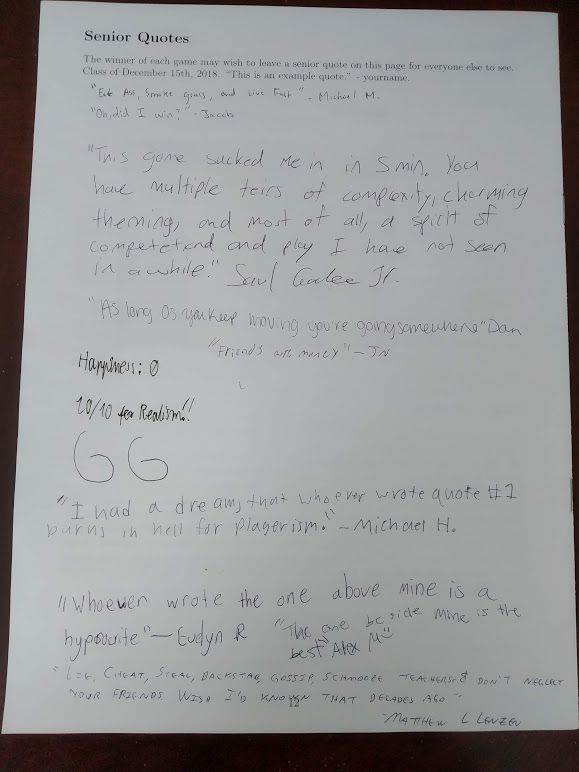 Senior Quotes
The winner of each game may wish to leave a senior quote on this page for everyone else to see.
Class of December 15th, 2018. "This is an example quote." - yourname.
"Eat Ass, Smoke grass, and Live Fast" - Michael M.
"Oh, did I win?" - Jacob
"This game sucked me in in 5 min. You
have multiple teirs of complexity, charming
theming, and most of all, a spirit of
competetend and play I have not seen
in a while." Saul Jr.
"As long as you keep moving you're going somewhere" Dan
"Friends are money" - JN
Happiness: 0
10/10 for Realism!!
GG
"I had a dream, that whoever wrote quote #1
burns in hell for plagerism." - Michael H.
"Whoever wrote the one above mine is a
hypocrite" - Evelyn R
"The one beside mine is the
best" Alex M
"Lie, Cheat, Steal, Backstab, Gossip, Schmooze teachers & don't neglect
your friends Wish I'd known that decades ago"
- Matthew L Lenzen